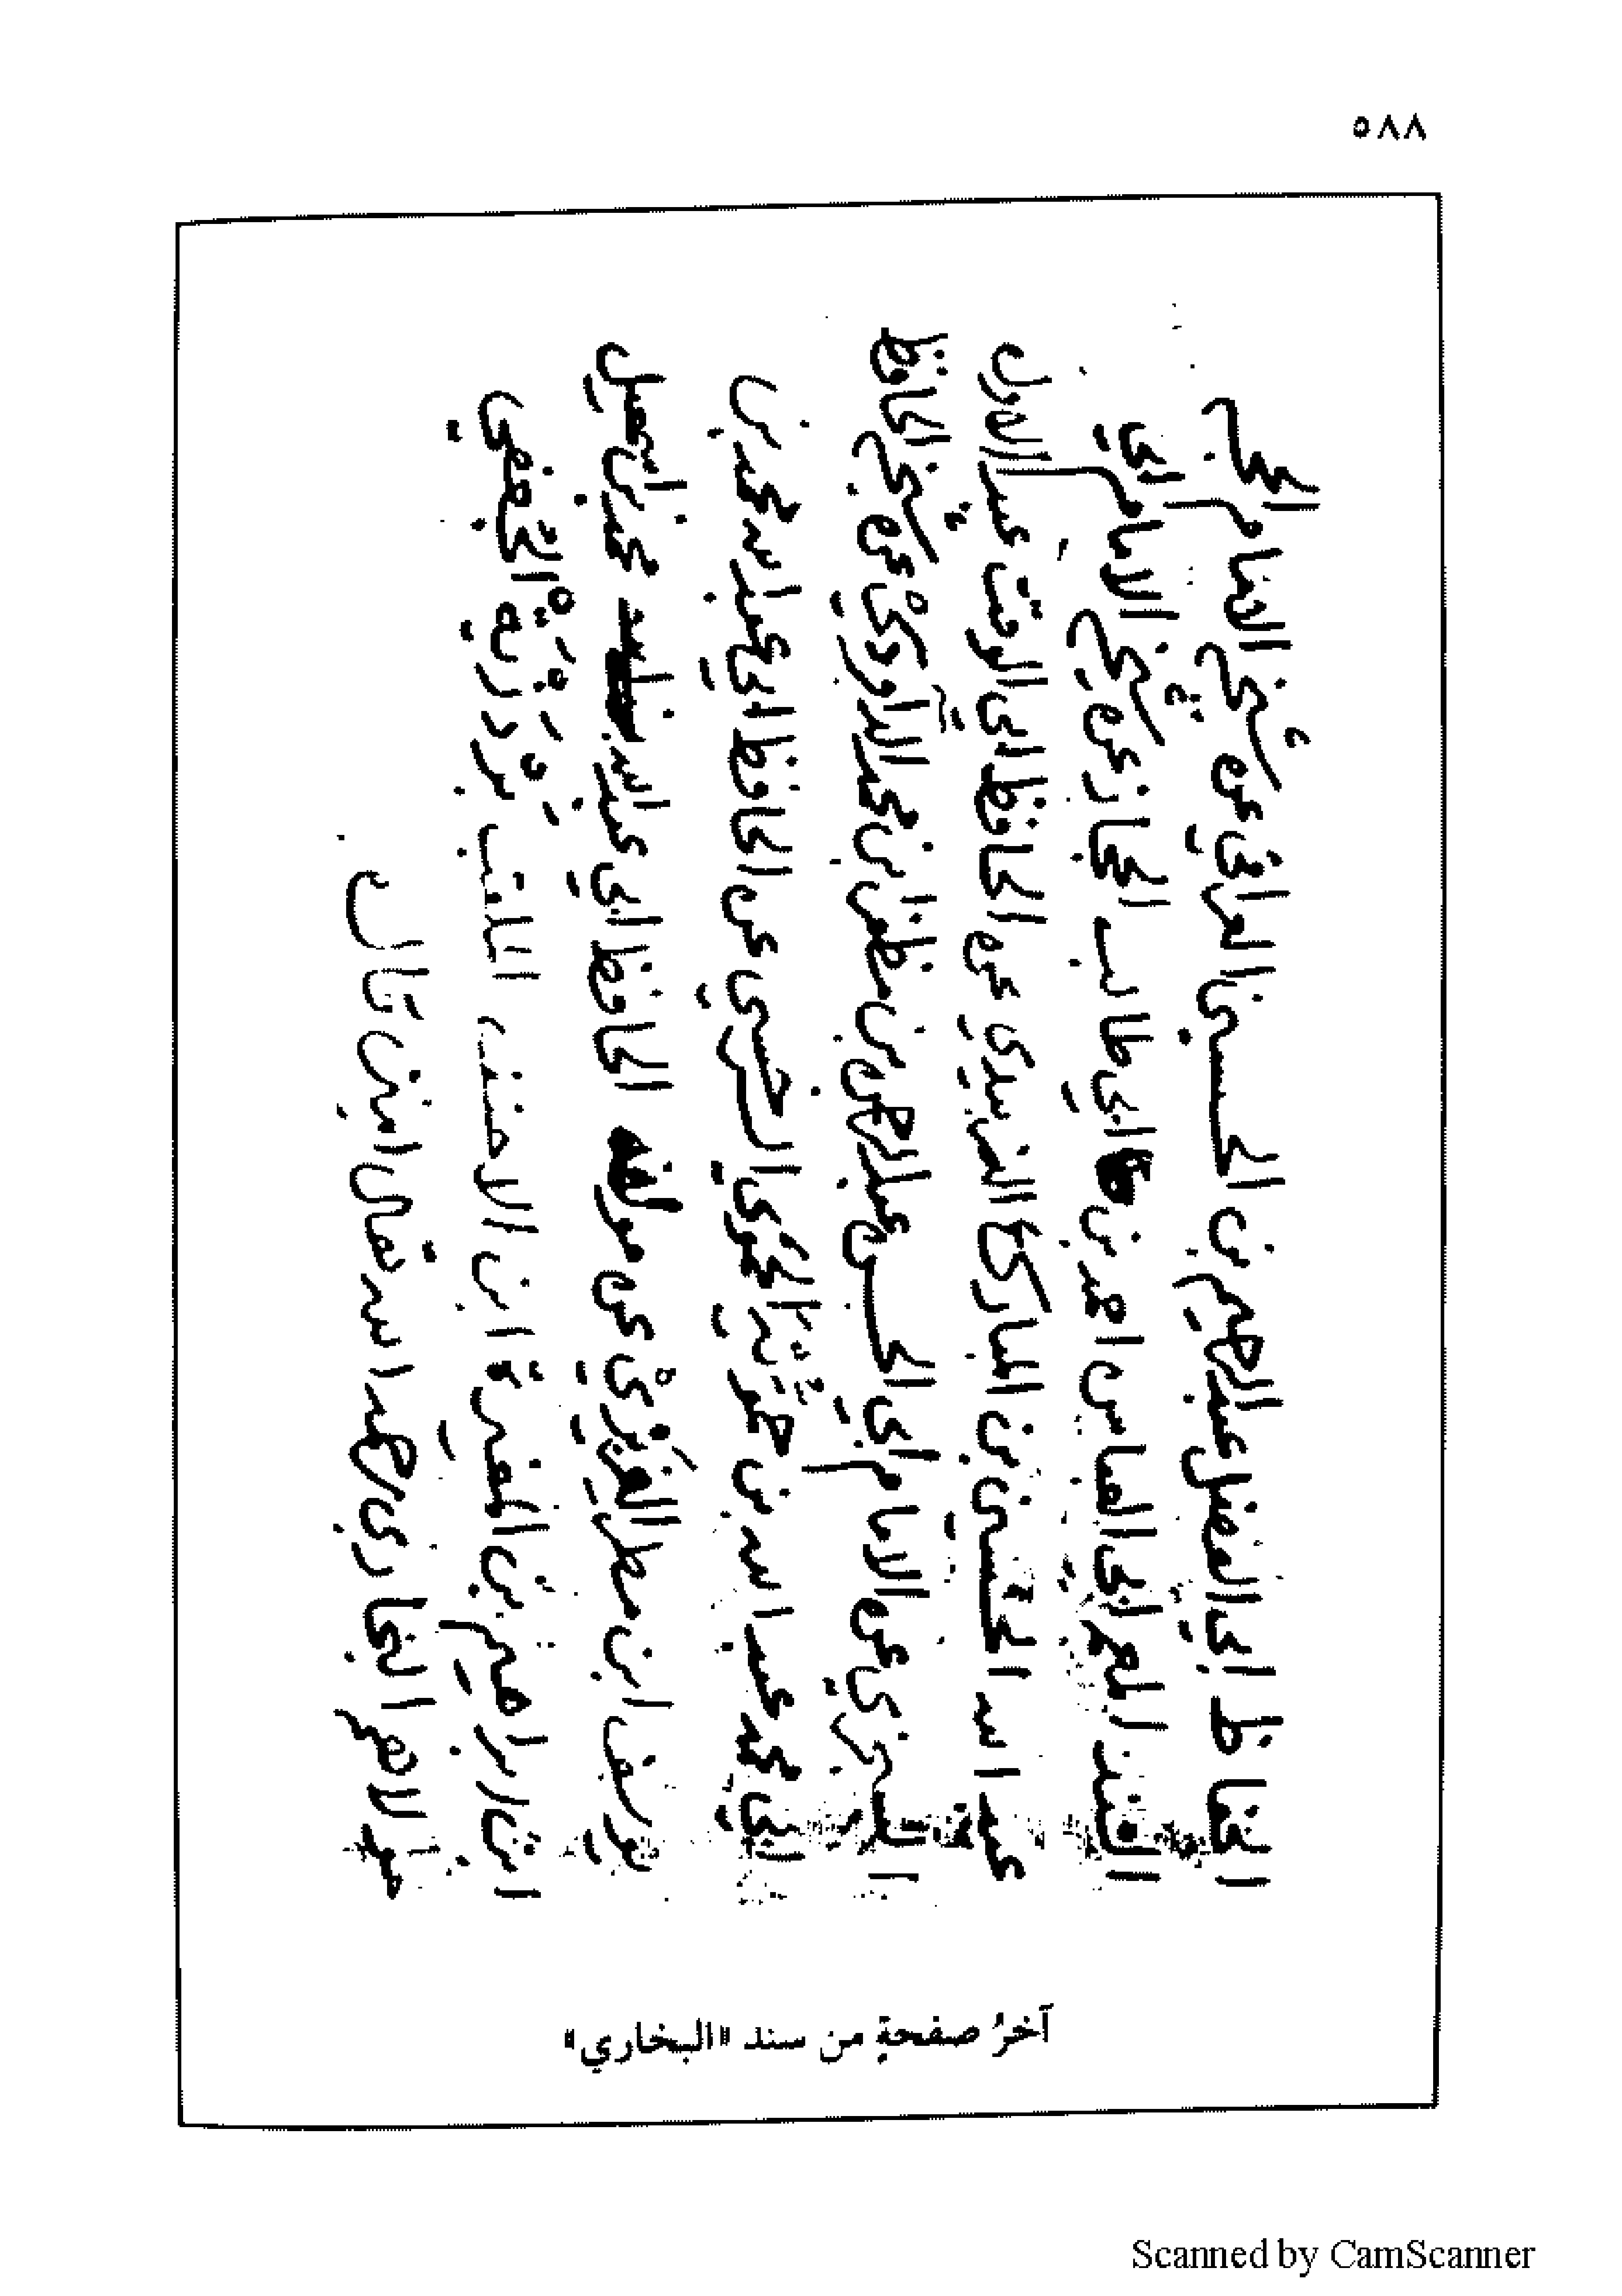 ٥٨٨
الحفاظ ابي الفضل عبد الرحيم بن الحسين العراقي عن شيخ الامام الحجه
المسند المعمر ابي العباس احمد بن ابي طالب الحجار عن شيخ الامام ابي
عبد الله الحسين بن المبارك الزبيدي عن الحافظ ابي الوقت عبد الاول
السجزي عن الامام ابي الحسن عبد الرحمن بن مظفر بن محمد الداودي عن شيخ الحافظ
ابي محمد عبد الله بن حمويه الحموي السرخسي عن الحافظ ابي عبد الله محمد بن
يوسف ابن مطر الفربري عن مولفه الحافظ ابي عبد الله محمد بن اسمعيل
ابن ابراهيم بن المغيرة ابن الاحنف الملقب بردزبة الجعفي
مولاهم البخاري رحمه الله تعالى امين قال
آخرُ صفحةٍ من سند «البخاري»
Scanned by CamScanner